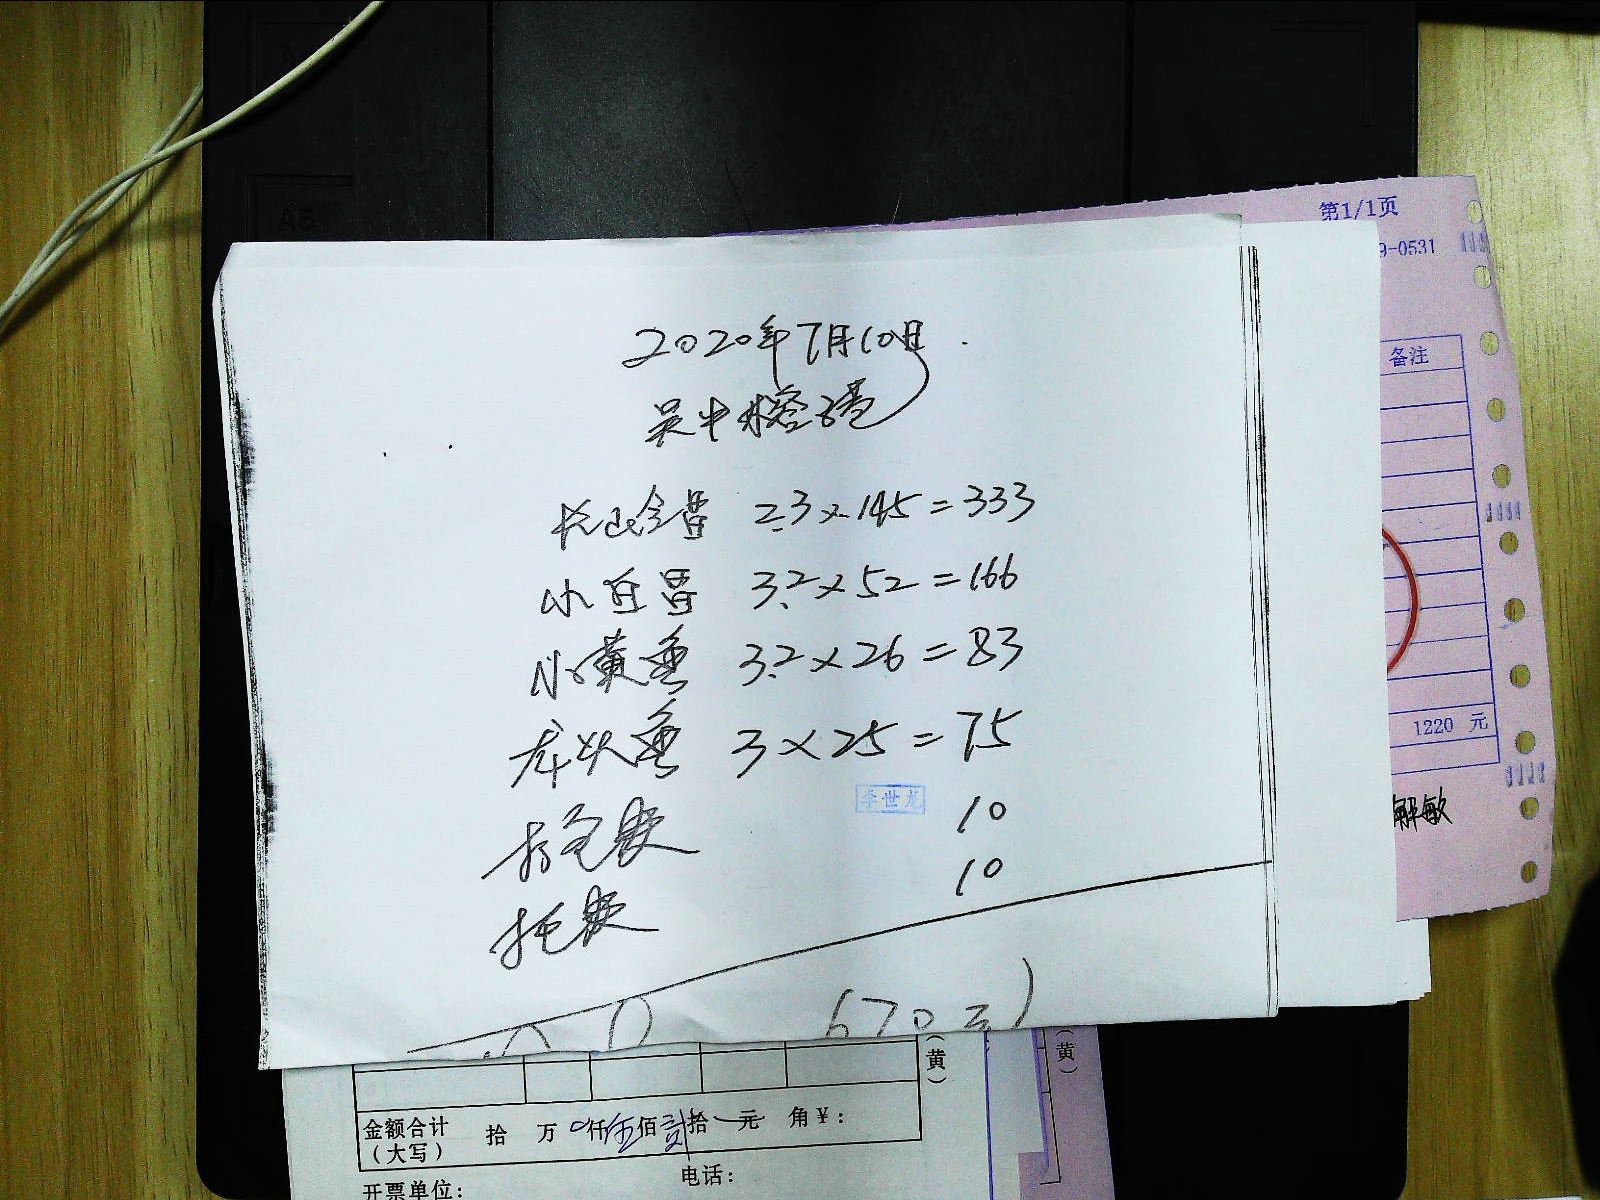 第1/1页
9-0531
备注
2020年7月10日
吴中
2.3×145=333
小 3.2×52=166
小黄鱼 3.2×26=83
龙头鱼 3×25=75
李世龙
打包费 10
托费 10
670元)
1220 元
解敏
(黄)
(黄)
金额合计
(大写)
拾 万 0仟伍佰贰拾 元 角¥:
开票单位:
电话: